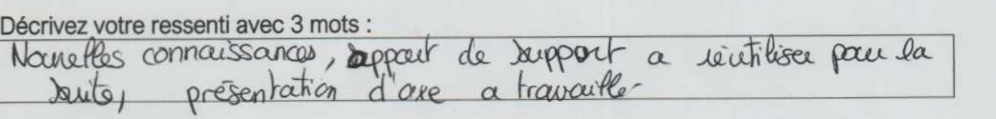 Décrivez votre ressenti avec 3 mots :
Nouvelles connaissances, apport de support a réutiliser pour la
suite, présentation d'axe a travailler